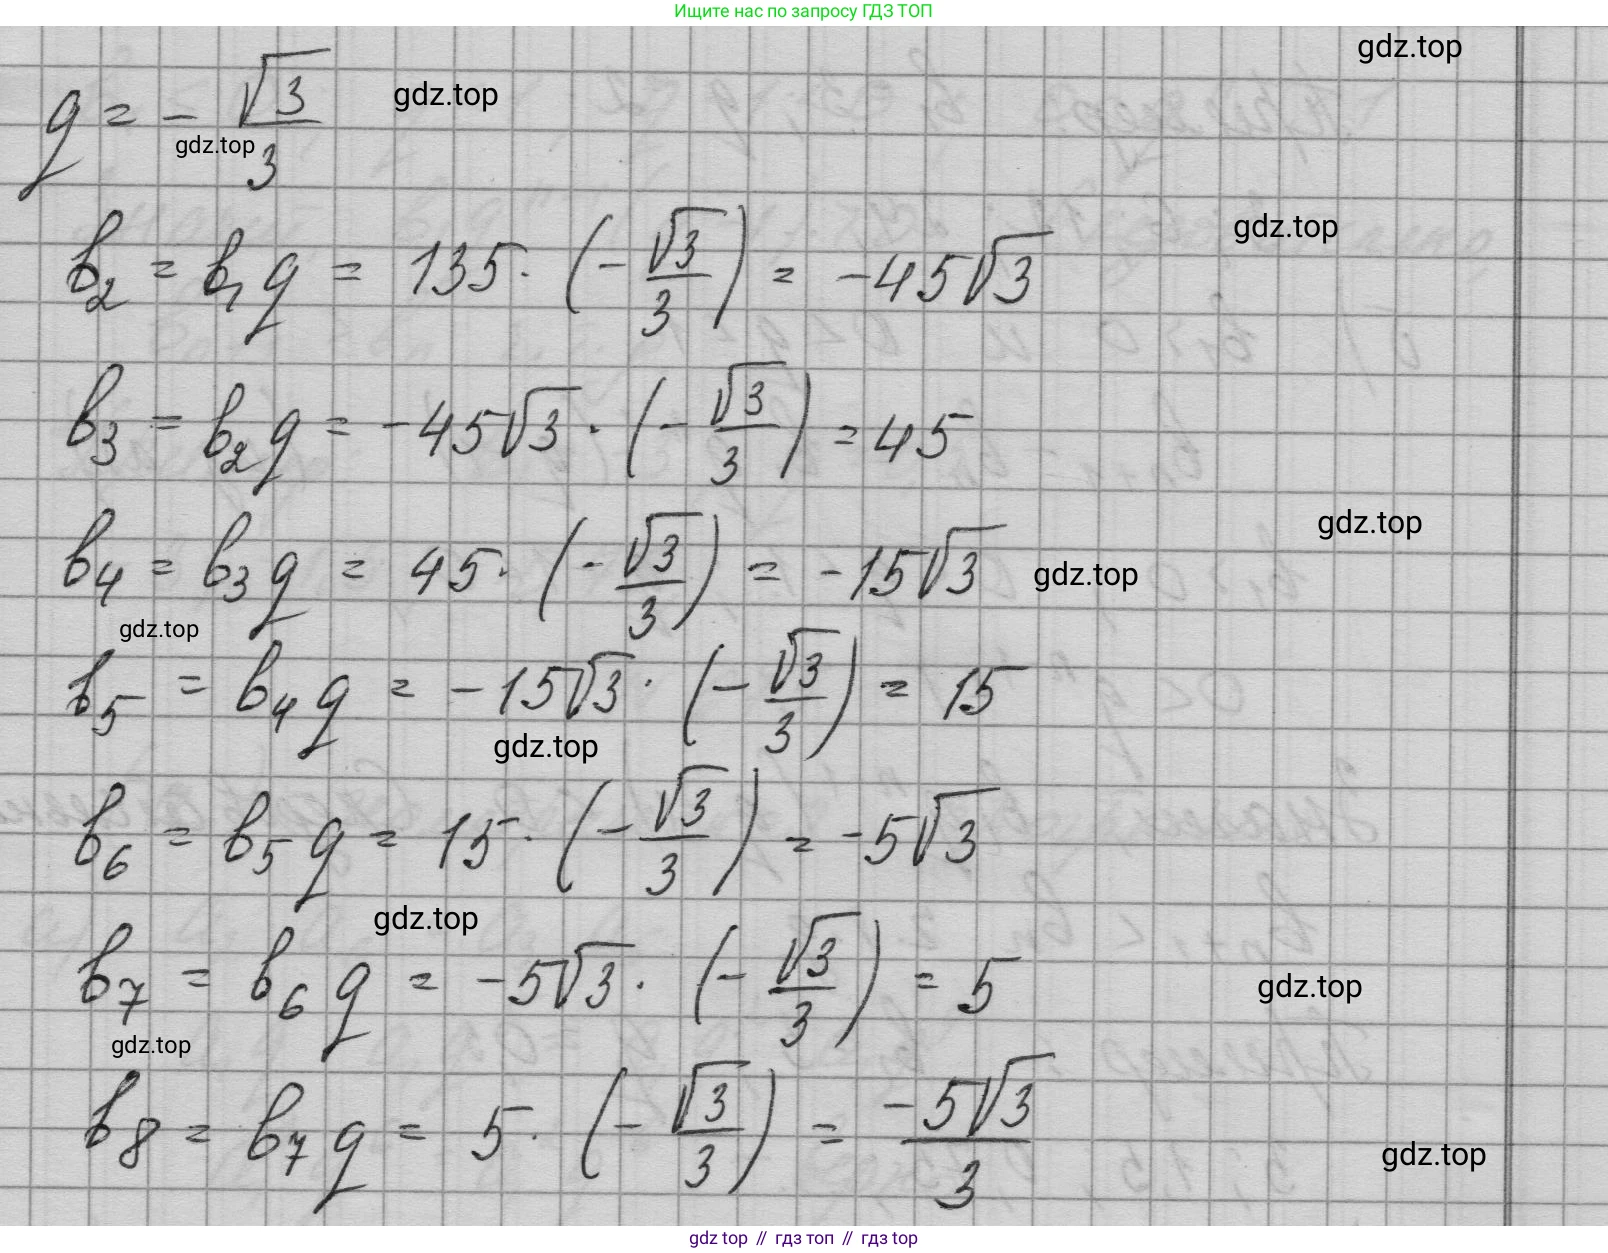 Ищите нас по запросу ГДЗ ТОП
gdz.top
q = - √3/3
gdz.top
gdz.top
gdz.top
b₂ = b₁q = 135 · (-√3/3) = -45√3
b₃ = b₂q = -45√3 · (-√3/3) = 45
gdz.top
b₄ = b₃q = 45 · (-√3/3) = -15√3
gdz.top
gdz.top
b₅ = b₄q = -15√3 · (-√3/3) = 15
gdz.top
b₆ = b₅q = 15 · (-√3/3) = -5√3
gdz.top
b₇ = b₆q = -5√3 · (-√3/3) = 5
gdz.top
gdz.top
b₈ = b₇q = 5 · (-√3/3) = -5√3/3
gdz.top
gdz top // гдз топ // гдз top